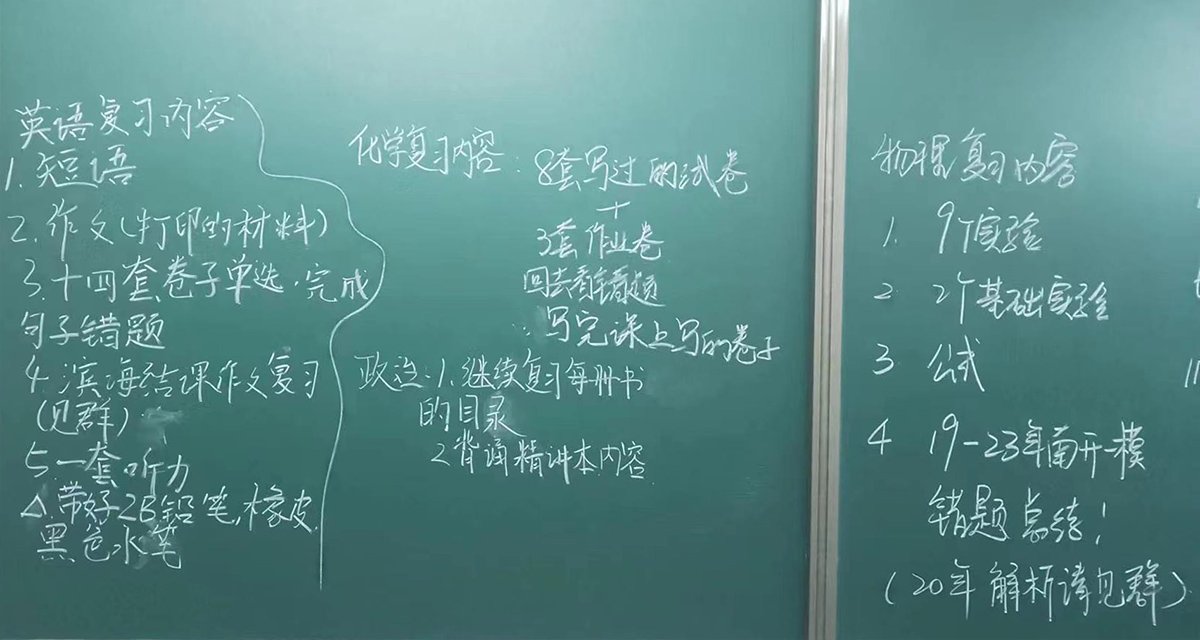 英语复习内容
1.短语
2.作文(打印的材料)
3.十四套卷子单选.完成
句子错题
4.滨海结课作文复习
(见群)
5一套听力
△.带好2B铅笔,橡皮,
黑色水笔
化学复习内容:8套写过的试卷
+
3套作业卷
回去看错题
写完课上写的卷子
政治:1.继续复习每册书
的目录
2背诵精讲本内容
物理复习内容
1. 9个实验
2 2个基础实验
3 公式
4 19-23年南开一模
错题总结!
(20年解析请见群)